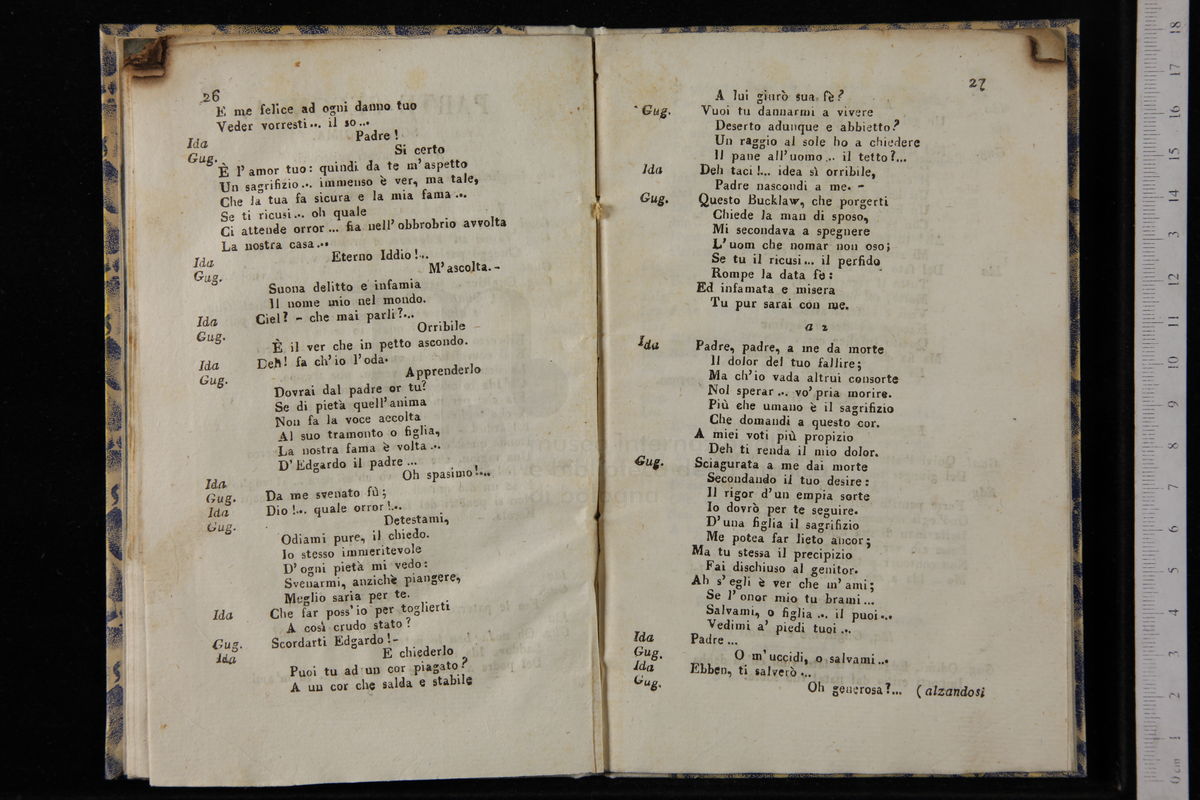 26
E me felice ad ogni danno tuo
Veder vorresti... il so...
Ida Padre!
Gug. Si certo
È l'amor tuo: quindi da te m'aspetto
Un sagrifizio... immenso è ver, ma tale,
Che la tua fa sicura e la mia fama...
Se ti ricusi... oh quale
Ci attende orror... fia nell'obbrobrio avvolta
La nostra casa...
Ida Eterno Iddio!...
Gug. M'ascolta. -
Suona delitto e infamia
Il nome mio nel mondo.
Ida Ciel? - che mai parli?...
Gug. Orribile -
È il ver che in petto ascondo.
Ida Deh! fa ch'io l'oda.
Gug. Apprenderlo
Dovrai dal padre or tu?
Se di pietà quell'anima
Non fa la voce accolta
Al suo tramonto o figlia,
La nostra fama è volta...
D'Edgardo il padre...
Ida Oh spasimo!...
Gug. Da me svenato fù;
Ida Dio!... quale orror!...
Gug. Detestami,
Odiami pure, il chiedo.
Io stesso immeritevole
D'ogni pietà mi vedo:
Svenarmi, anzichè piangere,
Meglio saria per te.
Ida Che far poss'io per toglierti
A così crudo stato?
Gug. Scordarti Edgardo! -
Ida E chiederlo
Puoi tu ad un cor piagato?
A un cor che salda e stabile
27
A lui giurò sua fè?
Gug. Vuoi tu dannarmi a vivere
Deserto adunque e abbietto?
Un raggio al sole ho a chiedere
Il pane all'uomo... il tetto?...
Ida Deh taci!... idea sì orribile,
Padre nascondi a me. -
Gug. Questo Bucklaw, che porgerti
Chiede la man di sposo,
Mi secondava a spegnere
L'uom che nomar non oso;
Se tu il ricusi... il perfido
Rompe la data fè:
Ed infamata e misera
Tu pur sarai con me.
a 2
Ida Padre, padre, a me da morte
Il dolor del tuo fallire;
Ma ch'io vada altrui consorte
Nol sperar... vo' pria morire.
Più che umano è il sagrifizio
Che domandi a questo cor.
A miei voti più propizio
Deh ti renda il mio dolor.
Gug. Sciagurata a me dai morte
Secondando il tuo desire:
Il rigor d'un empia sorte
Io dovrò per te seguire.
D'una figlia il sagrifizio
Me potea far lieto ancor;
Ma tu stessa il precipizio
Fai dischiuso al genitor.
Ah s'egli è ver che m'ami;
Se l'onor mio tu brami...
Salvami, o figlia... il puoi...
Vedimi a' piedi tuoi...
Ida Padre...
Gug. O m'uccidi, o salvami...
Ida Ebben, ti salverò...
Gug. Oh generosa?... (alzandosi